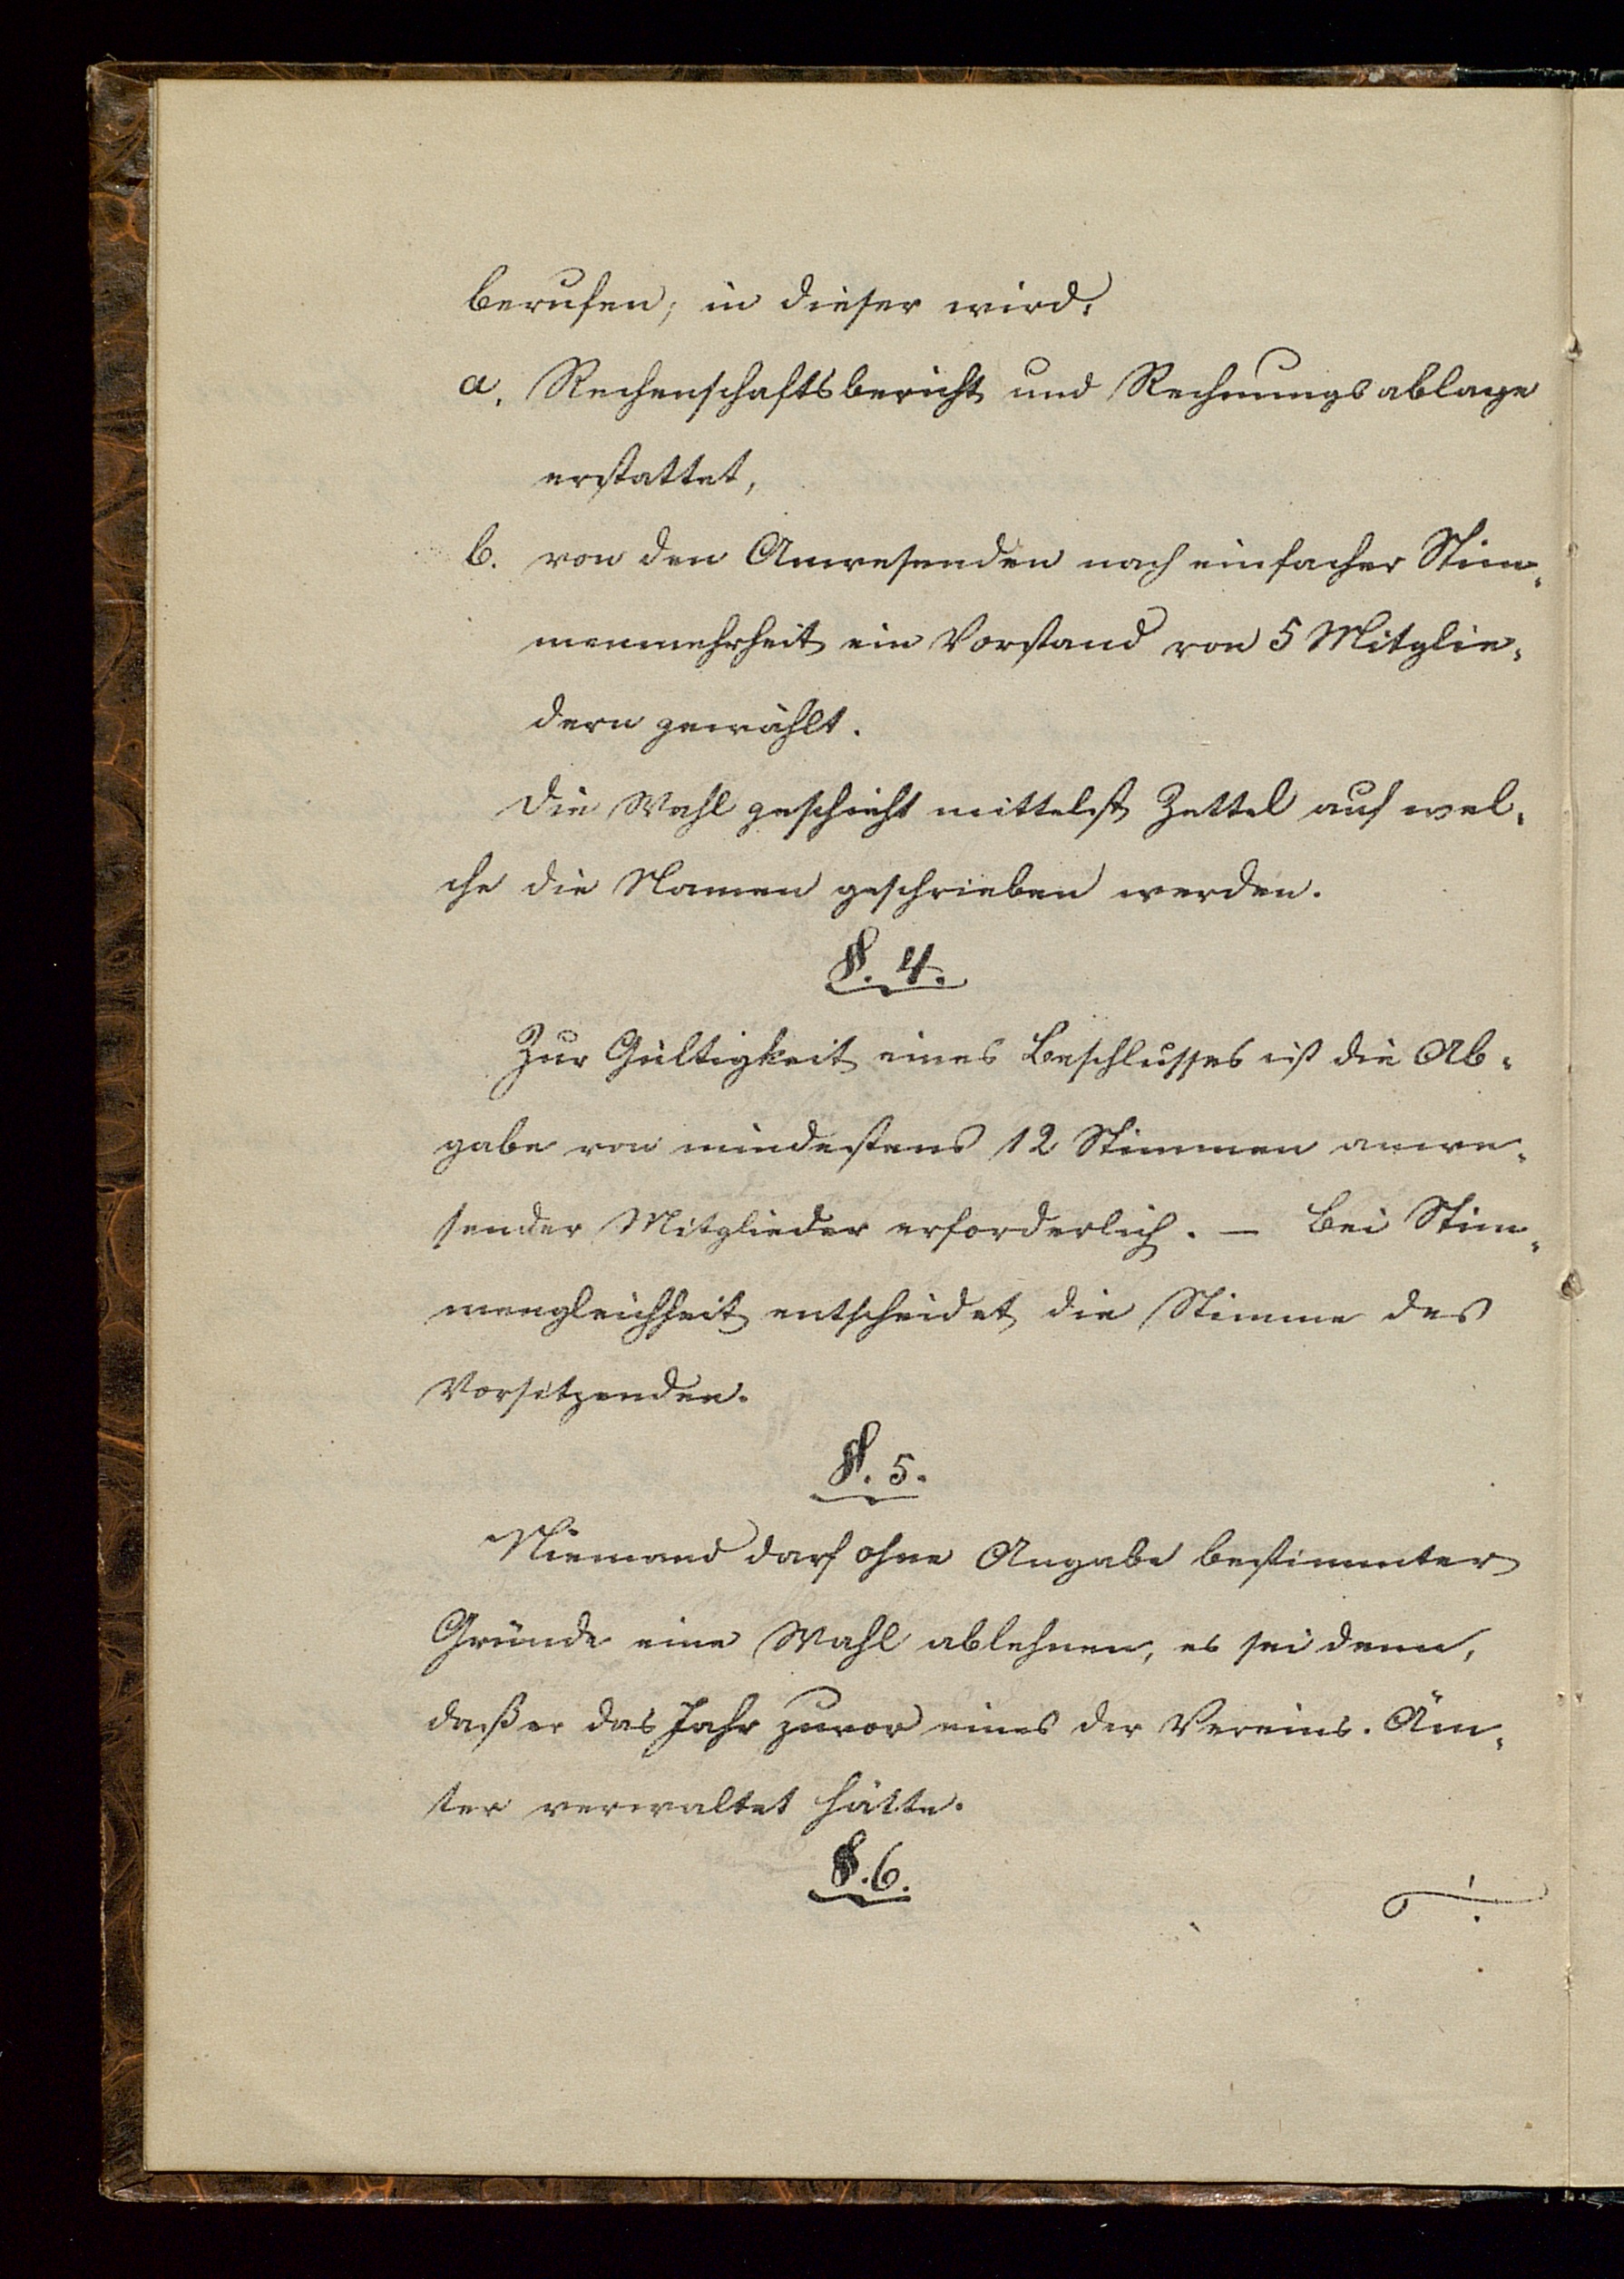 berufen; in dieser wird:
a. Rechenschaftsbericht und Rechnungsablage
erstattet,
b. von den Anwesenden nach einfacher Stim-
menmehrheit ein Vorstand von 5 Mitglie-
dern gewählt.
Die Wahl geschieht mittelst Zettel auf wel-
che die Namen geschrieben werden.
§. 4.
Zur Gültigkeit eines Beschlusses ist die Ab-
gabe von mindestens 12 Stimmen anwe-
sender Mitglieder erforderlich. – Bei Stim-
mengleichheit entscheidet die Stimme des
Vorsitzenden.
§. 5.
Niemand darf ohne Angabe bestimmter
Gründe eine Wahl ablehnen, es sei denn,
daß er das Jahr zuvor eines der Vereins-Äm-
ter verwaltet hätte.
§. 6.